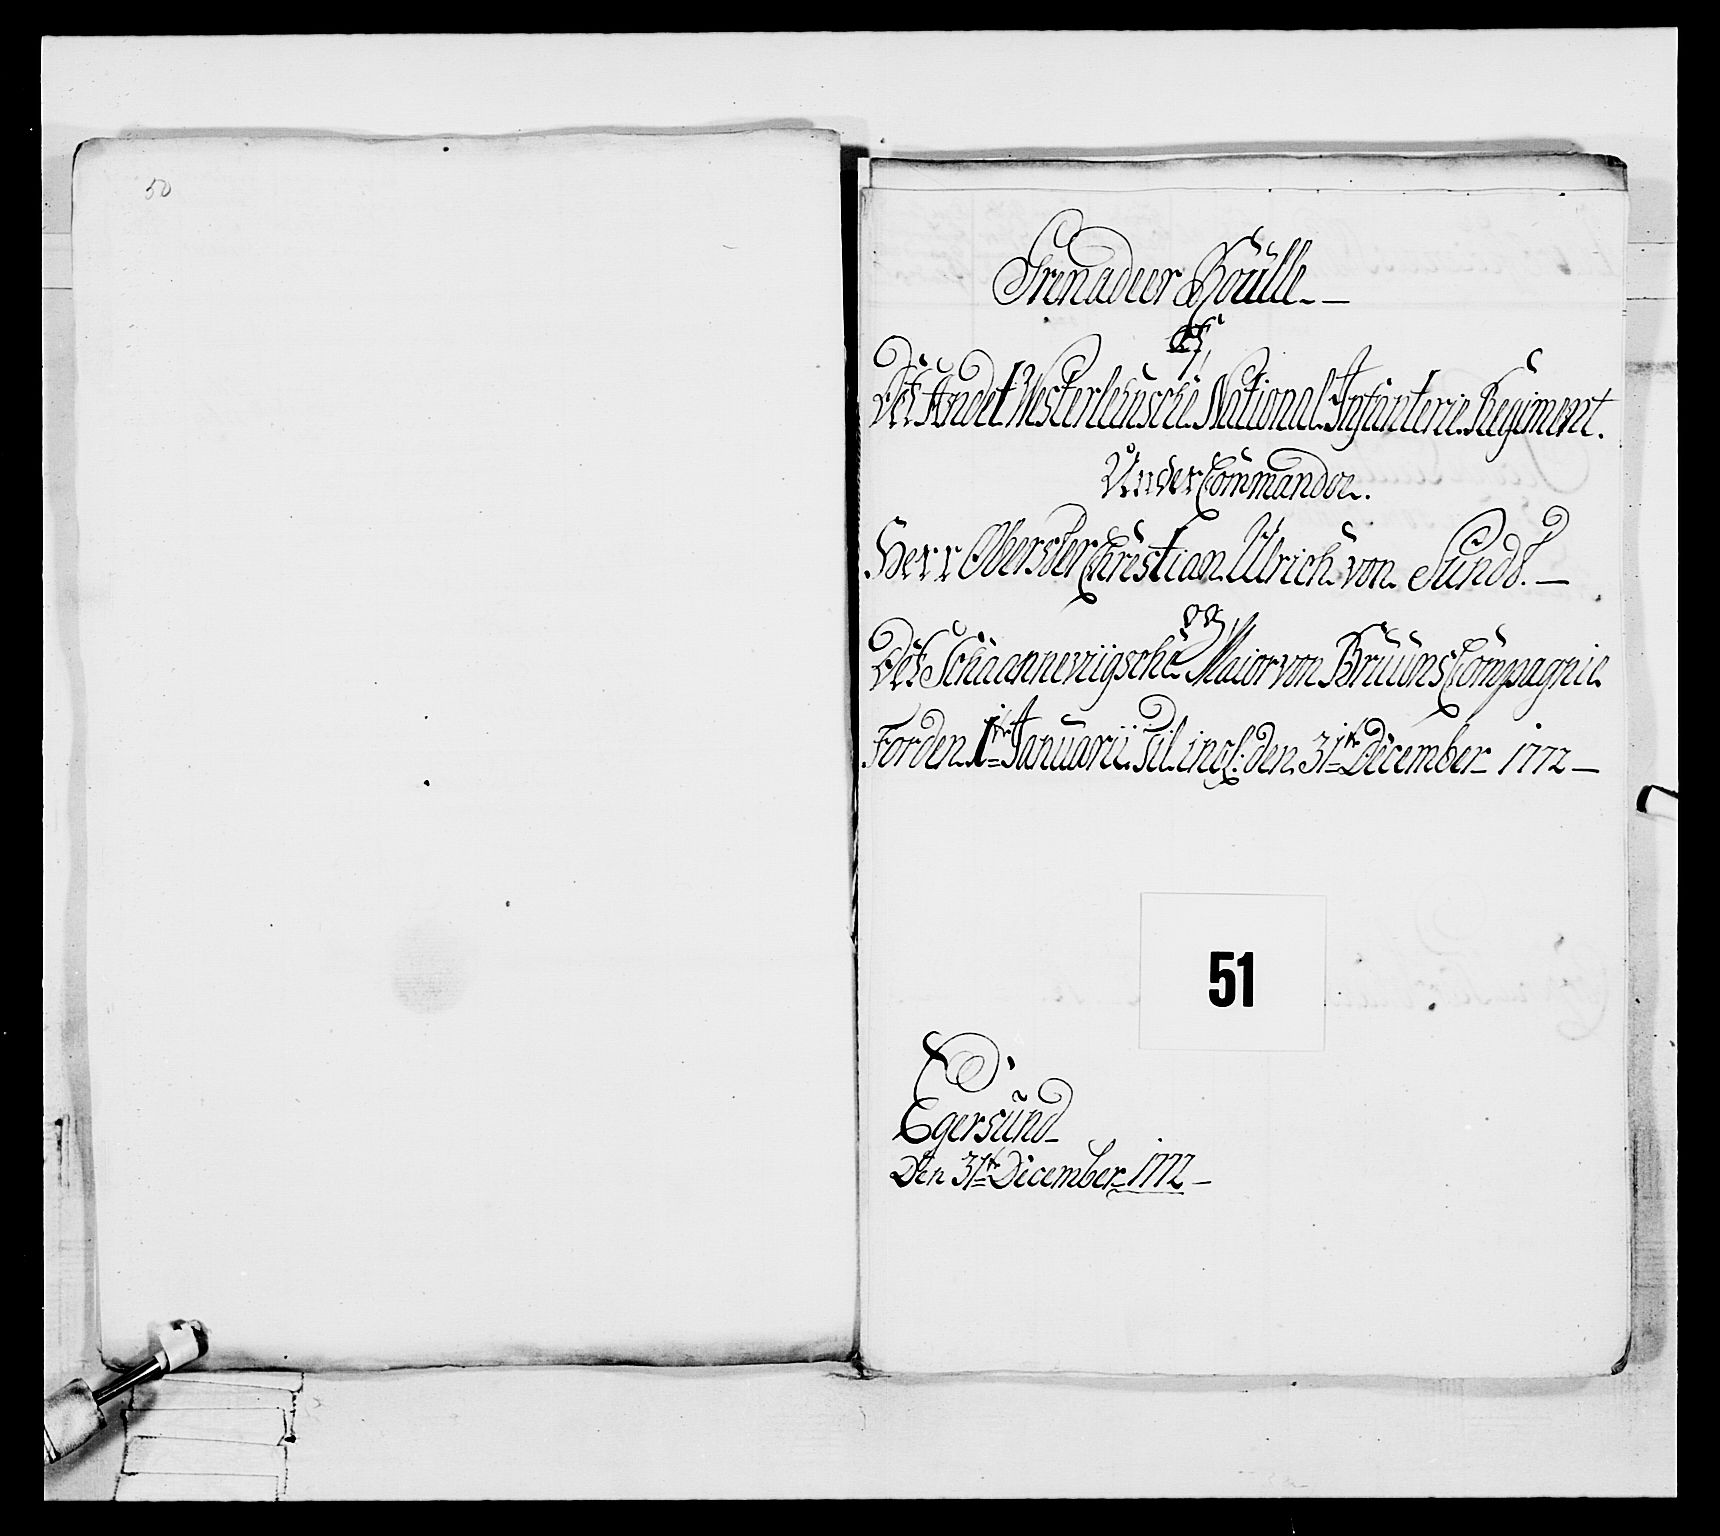 50
Grenadeer Roulle
Af
Det Andet Westerlehnsche National Infanterie Regiment.
Under Commandoe.
Herr Oberster Christian Ulrich von Sundt.
og
Det Schaannevügsche Maior von Bruuns Compagnie
For den 1te Januarii til incl: den 31te December 1772
51
Egersund
Den 31te December 1772